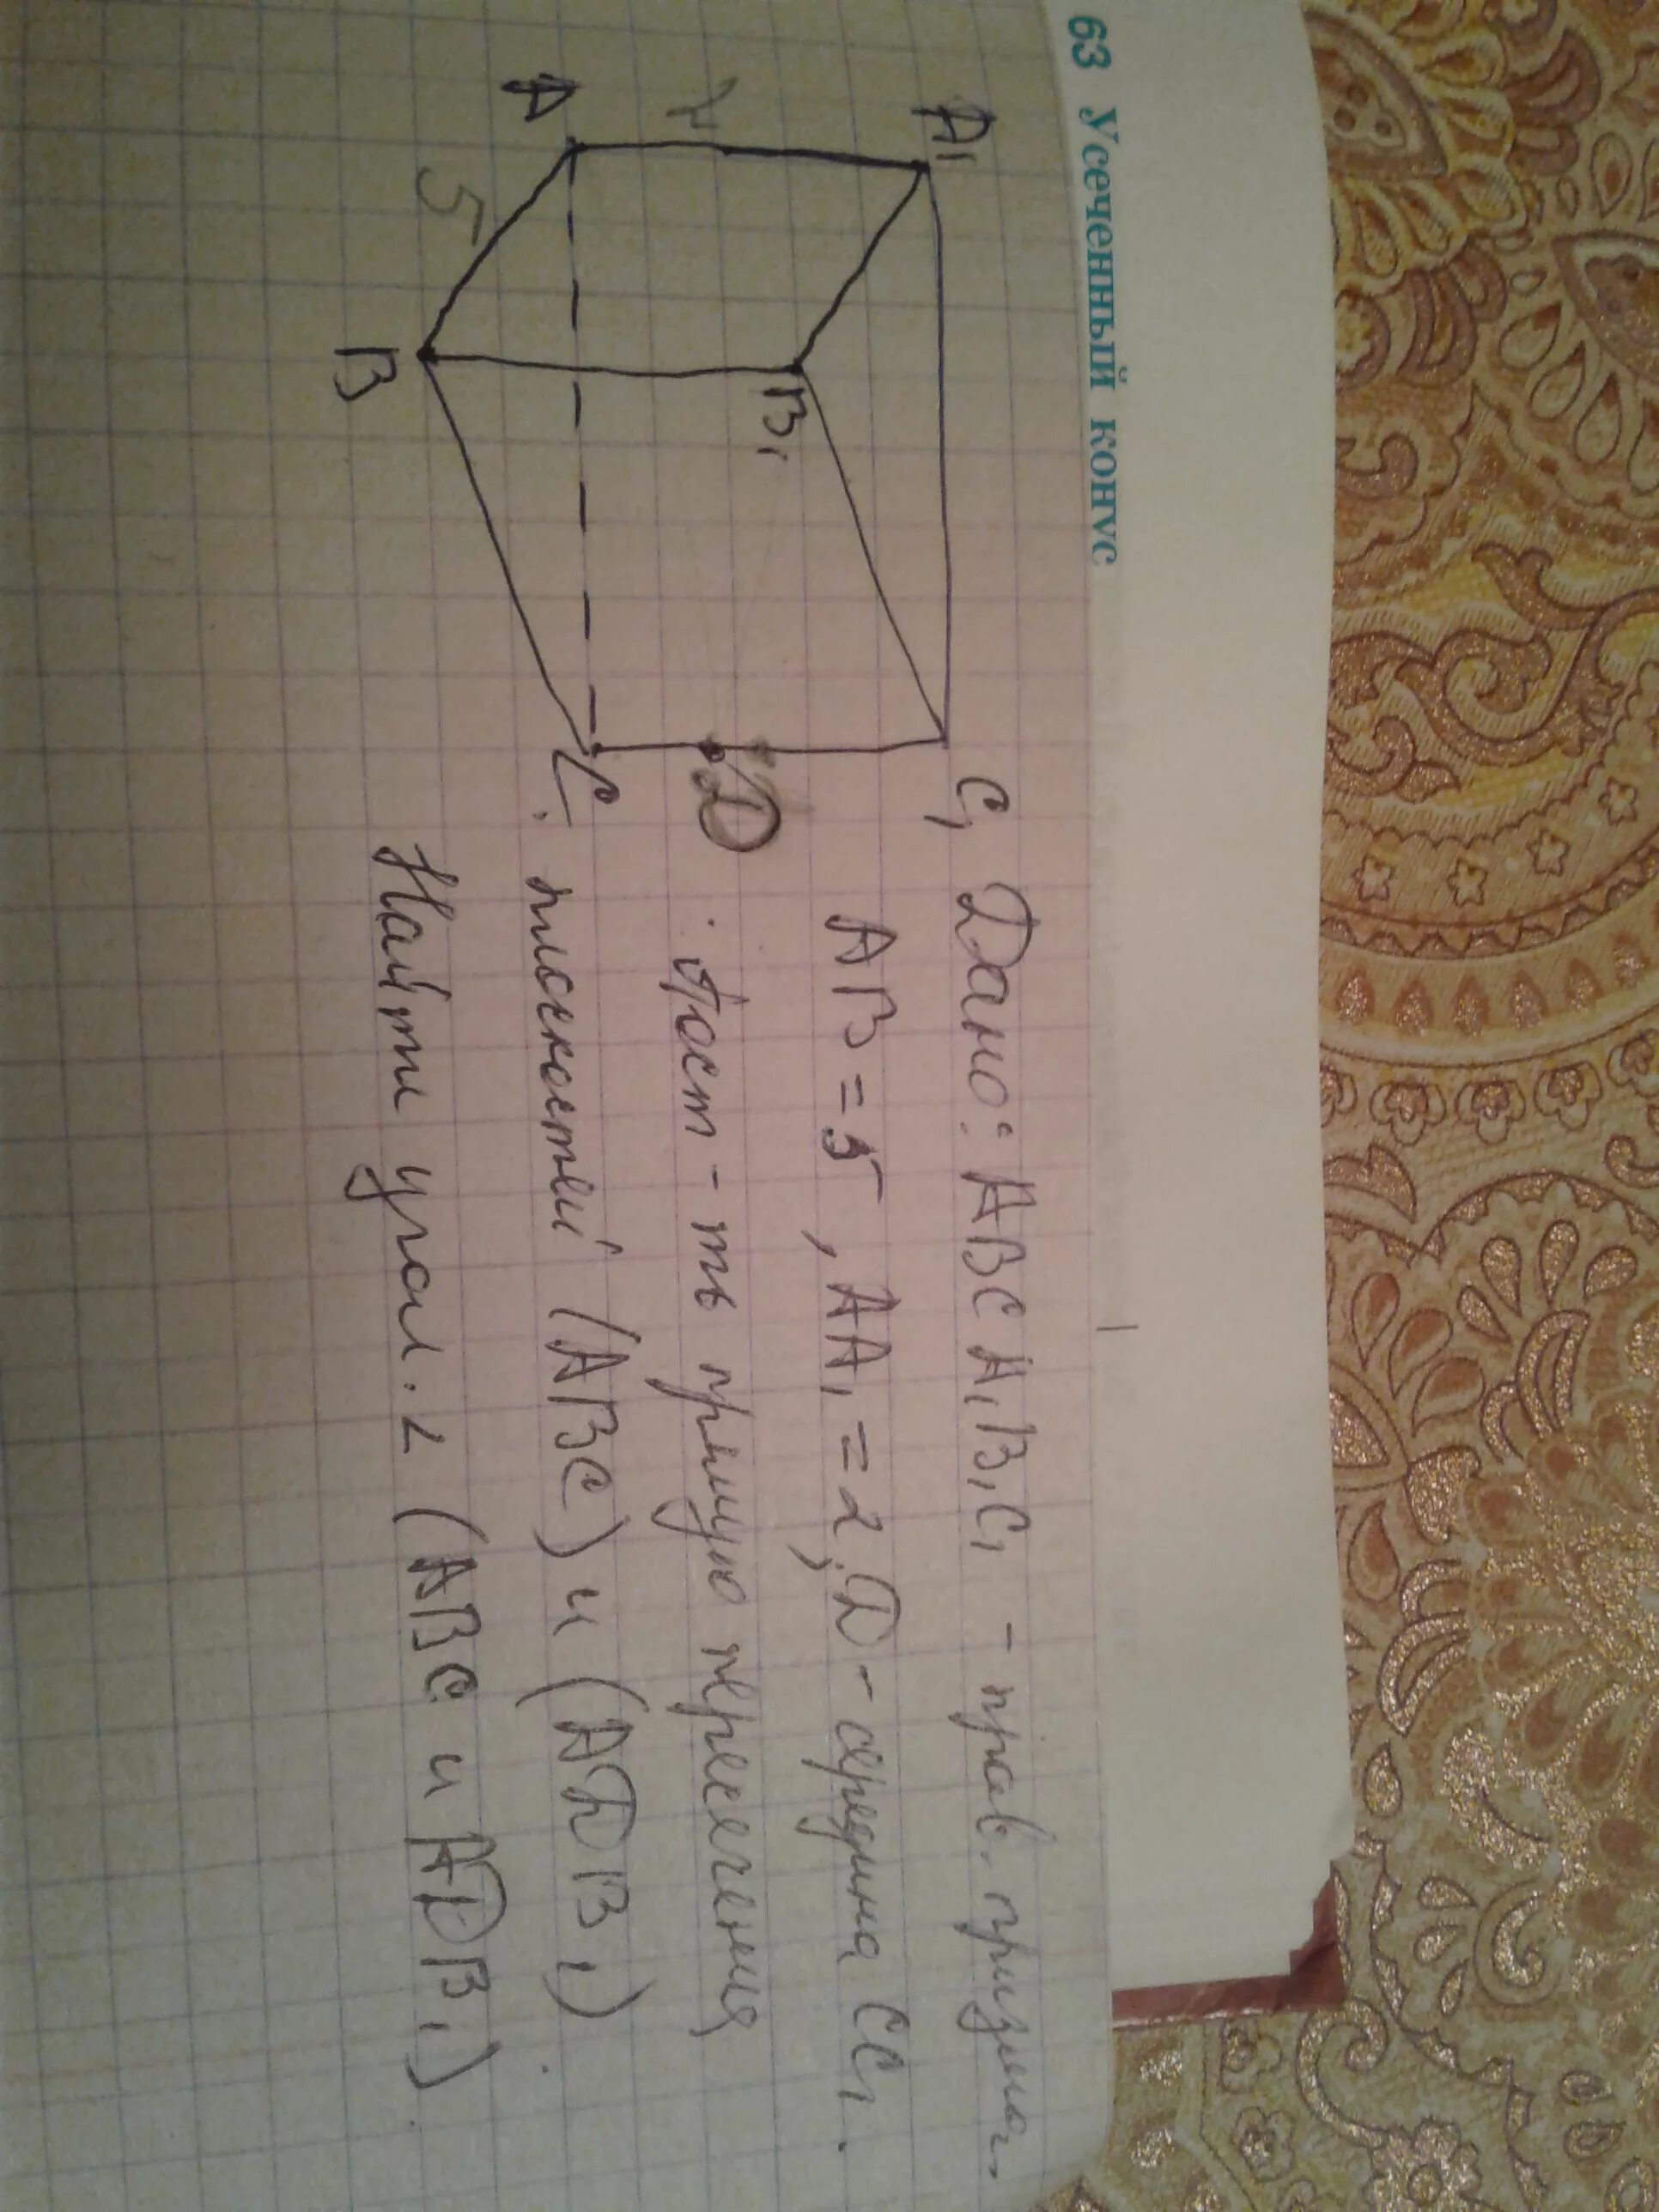 63 Усеченный конус
A₁
C₁
2
B₁
A
5
B
C
D
Дано: ABCA₁B₁C₁ - прав. призма.
AB = 5, AA₁ = 2, D - середина CC₁.
Пост-ть прямую пересечения
плоскостей (ABC) и (ADB₁).
Найти угол. ∠ (ABC и ADB₁).